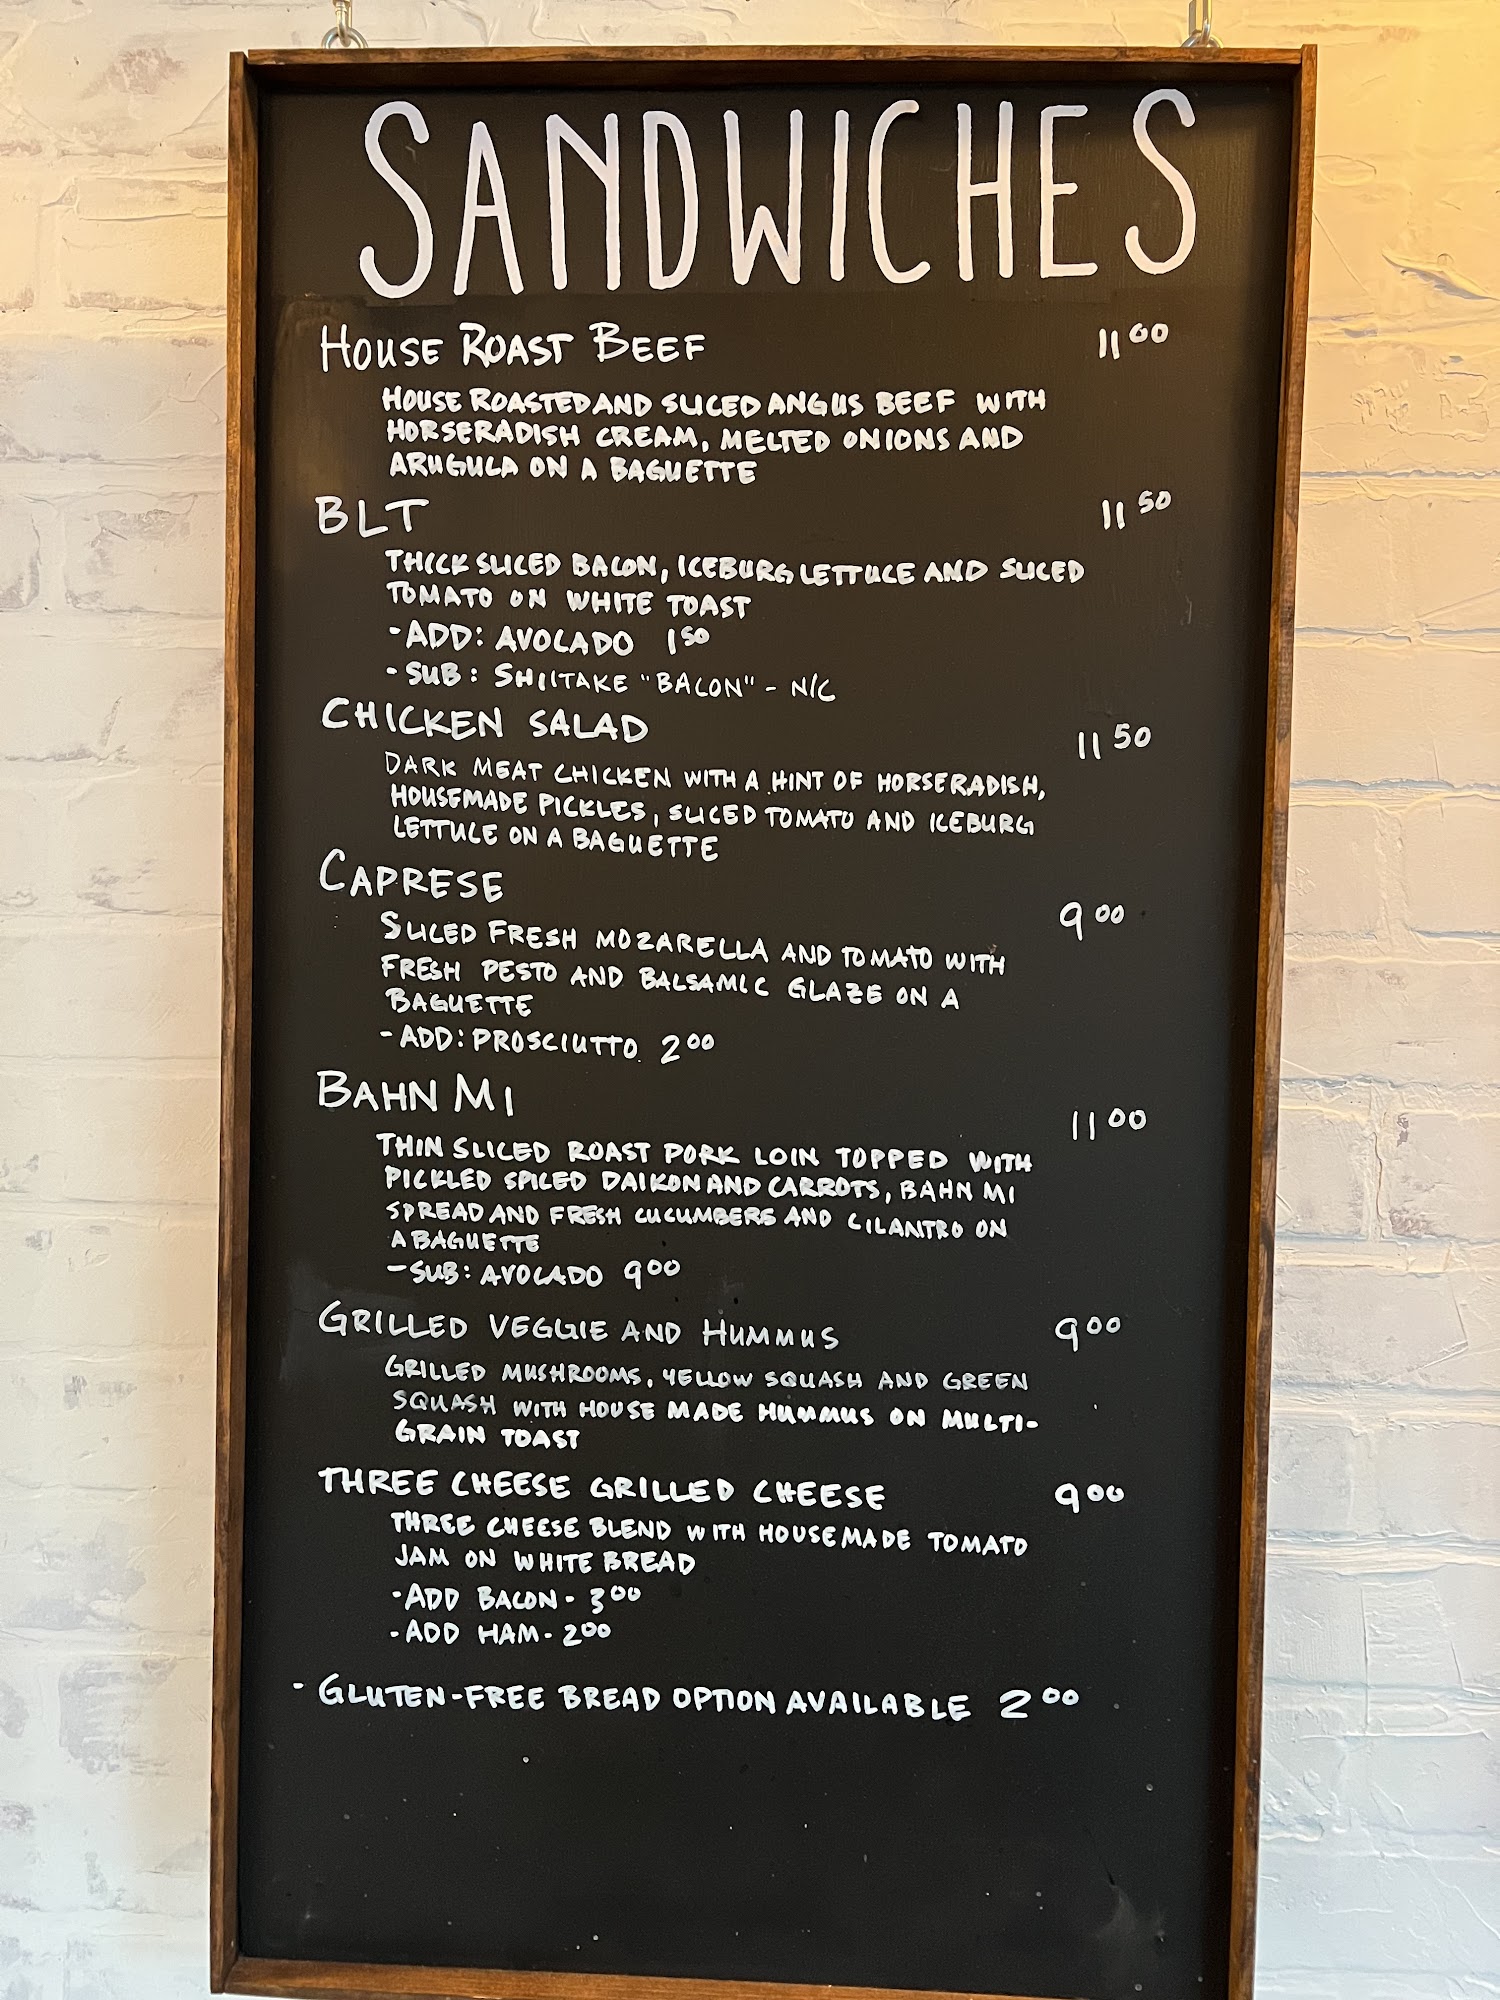 SANDWICHES
HOUSE ROAST BEEF 11 00
HOUSE ROASTED AND SLICED ANGUS BEEF WITH
HORSERADISH CREAM, MELTED ONIONS AND
ARUGULA ON A BAGUETTE
BLT 11 50
THICK SLICED BACON, ICEBURG LETTUCE AND SLICED
TOMATO ON WHITE TOAST
-ADD: AVOCADO 1 50
-SUB: SHIITAKE "BACON" - N/C
CHICKEN SALAD 11 50
DARK MEAT CHICKEN WITH A HINT OF HORSERADISH,
HOUSEMADE PICKLES, SLICED TOMATO AND ICEBURG
LETTUCE ON A BAGUETTE
CAPRESE 9 00
SLICED FRESH MOZARELLA AND TOMATO WITH
FRESH PESTO AND BALSAMIC GLAZE ON A
BAGUETTE
-ADD: PROSCIUTTO 2 00
BAHN MI 11 00
THIN SLICED ROAST PORK LOIN TOPPED WITH
PICKLED SPICED DAIKON AND CARROTS, BAHN MI
SPREAD AND FRESH CUCUMBERS AND CILANTRO ON
A BAGUETTE
-SUB: AVOCADO 9 00
GRILLED VEGGIE AND HUMMUS 9 00
GRILLED MUSHROOMS, YELLOW SQUASH AND GREEN
SQUASH WITH HOUSE MADE HUMMUS ON MULTI-
GRAIN TOAST
THREE CHEESE GRILLED CHEESE 9 00
THREE CHEESE BLEND WITH HOUSEMADE TOMATO
JAM ON WHITE BREAD
-ADD BACON - 3 00
-ADD HAM - 2 00
- GLUTEN-FREE BREAD OPTION AVAILABLE 2 00